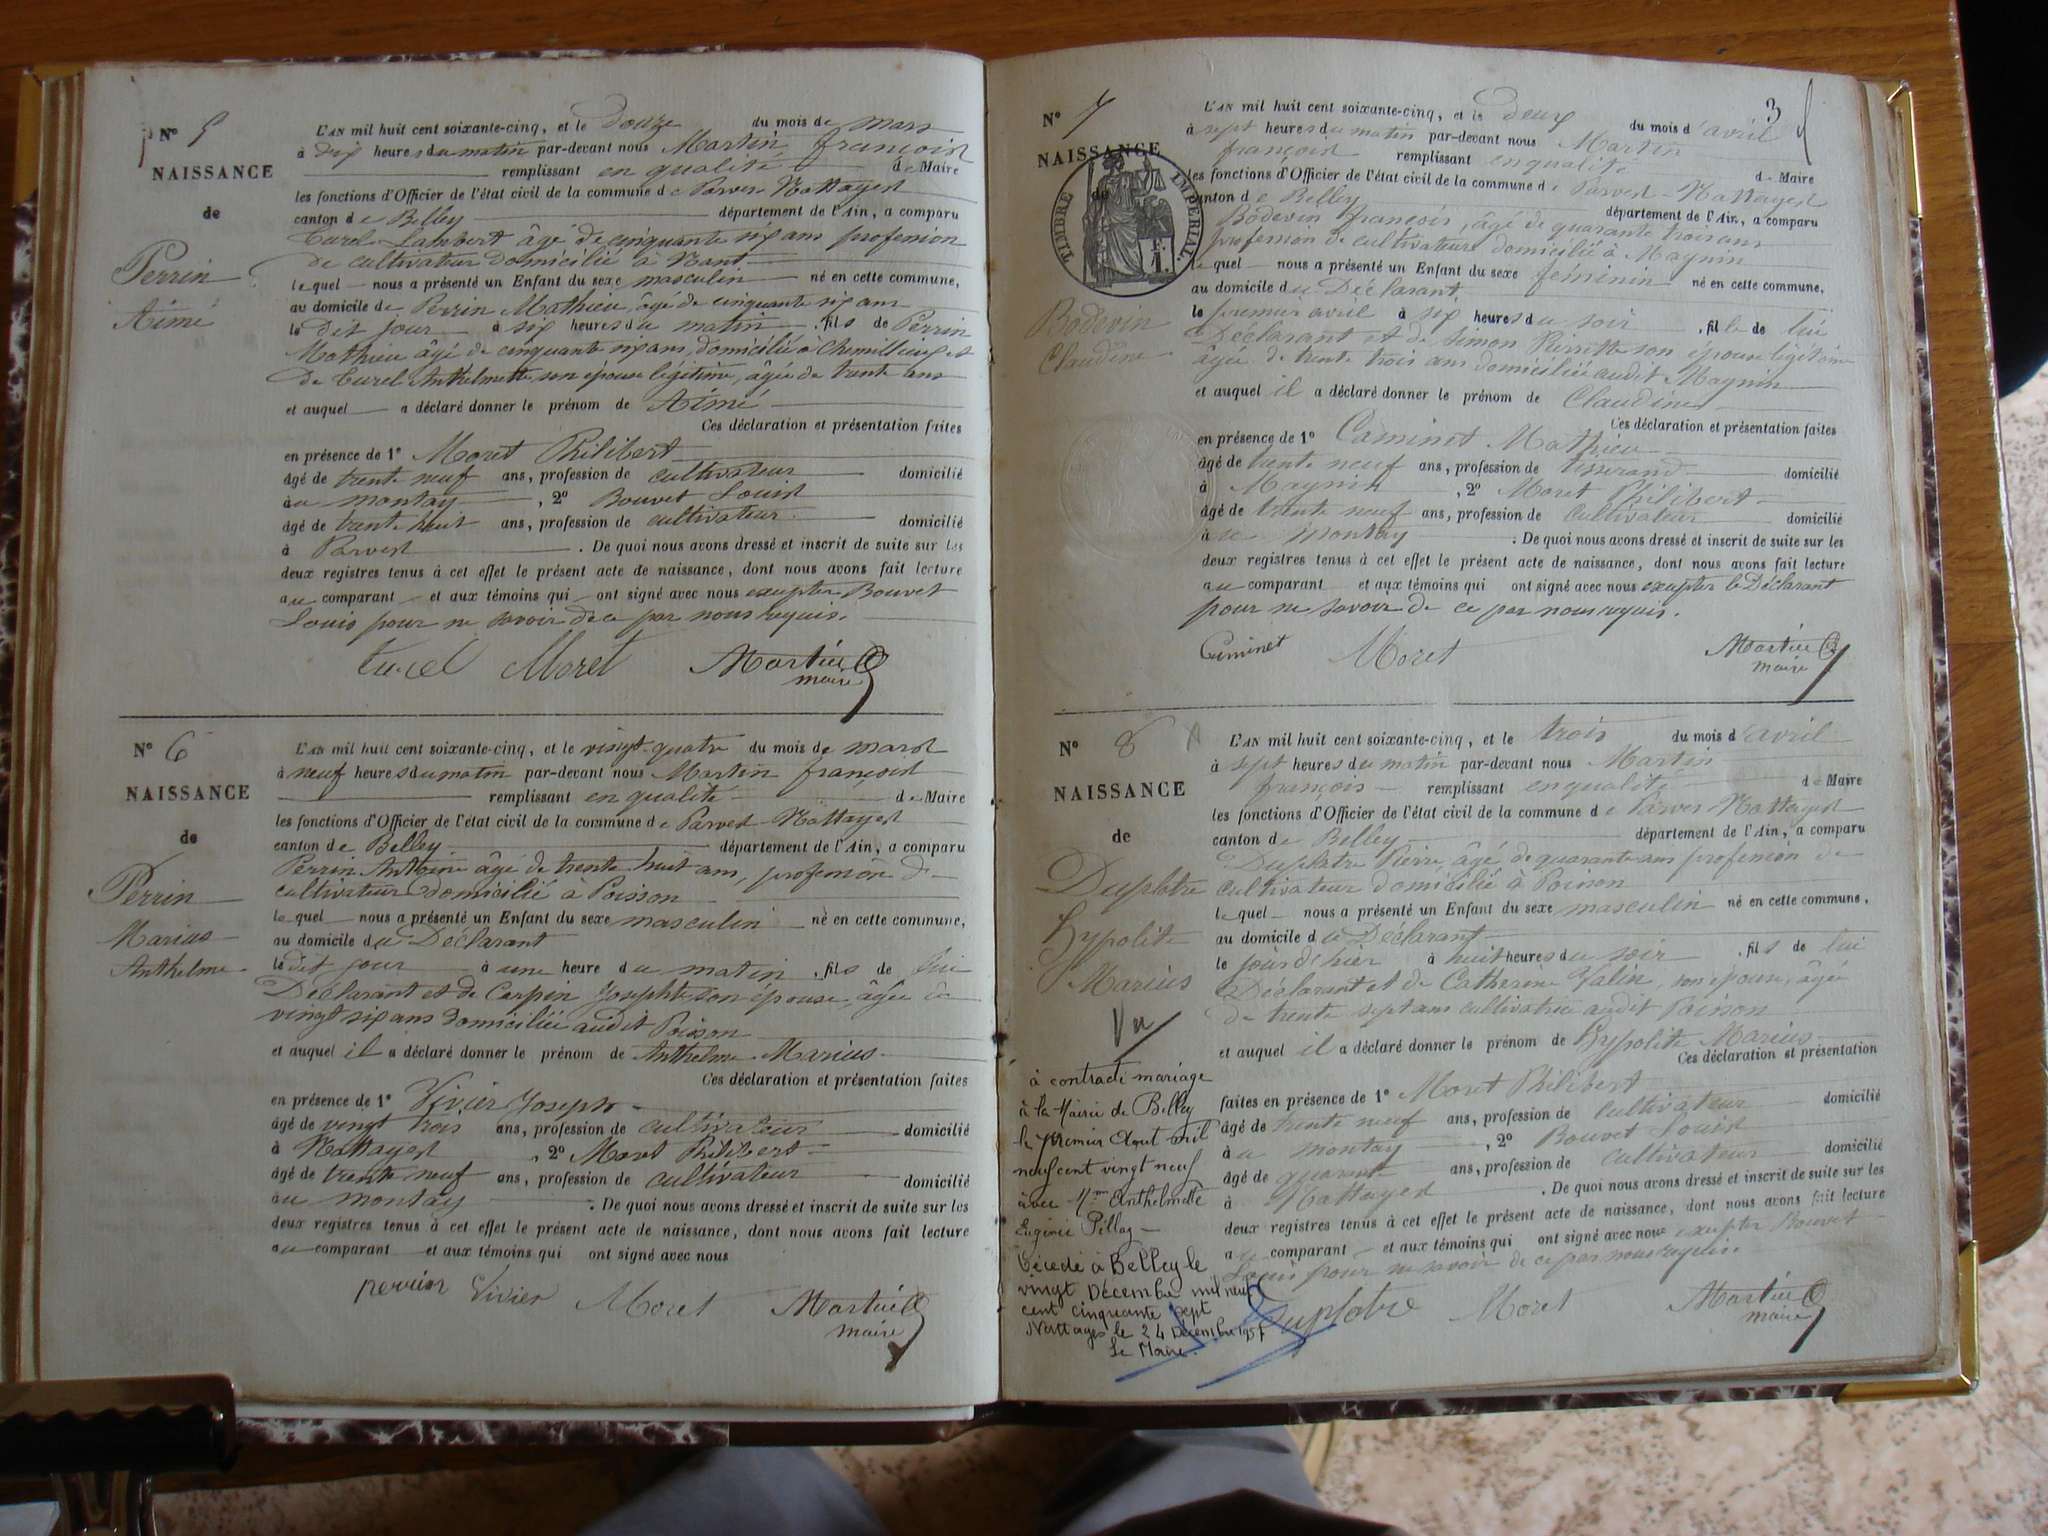 Nº 5
NAISSANCE
de
Perrin
Aimé
L'AN mil huit cent soixante-cinq, et le Douze du mois de mars
à dix heures du matin par-devant nous Martin françois
remplissant en qualité de Maire
les fonctions d'Officier de l'état civil de la commune de Parves Nattages
canton de Belley département de l'Ain, a comparu
Curel Lambert âgé de cinquante six ans profession
de cultivateur domicilié à Nant
lequel nous a présenté un Enfant du sexe masculin né en cette commune,
au domicile de Perrin Mathieu, âgé de cinquante six ans
le dit jour à six heures du matin, fils de Perrin
Mathieu âgé de cinquante six ans, domicilié à Chemillieu et
de Curel Anthelmette, son épouse légitime, âgée de trente ans
et auquel a déclaré donner le prénom de Aimé
Ces déclaration et présentation faites
en présence de 1º Moret Philibert
âgé de trente neuf ans, profession de cultivateur domicilié
à au montay, 2º Bouvet Louis
âgé de trente huit ans, profession de cultivateur domicilié
à Parves. De quoi nous avons dressé et inscrit de suite sur les
deux registres tenus à cet effet le présent acte de naissance, dont nous avons fait lecture
au comparant et aux témoins qui ont signé avec nous excepter Bouvet
Louis pour ne savoir de ce par nous requis.
Curel Moret Martin
maire
Nº 6
NAISSANCE
de
Perrin
Marius
Anthelme
L'AN mil huit cent soixante-cinq, et le vingt-quatre du mois de mars
à neuf heures du matin par-devant nous Martin françois
remplissant en qualité de Maire
les fonctions d'Officier de l'état civil de la commune de Parves Nattages
canton de Belley département de l'Ain, a comparu
Perrin Antoine âgé de trente huit ans, profession de
cultivateur domicilié à Poisson
lequel nous a présenté un Enfant du sexe masculin né en cette commune,
au domicile du Déclarant
le dit jour à une heure du matin, fils de lui
Déclarant et de Carpin Josephte son épouse, âgée de
vingt six ans domiciliée audit Poisson
et auquel il a déclaré donner le prénom de Anthelme Marius
Ces déclaration et présentation faites
en présence de 1º Vivier Joseph
âgé de vingt trois ans, profession de cultivateur domicilié
à Nattages, 2º Moret Philibert
âgé de trente neuf ans, profession de cultivateur domicilié
à au montay. De quoi nous avons dressé et inscrit de suite sur les
deux registres tenus à cet effet le présent acte de naissance, dont nous avons fait lecture
au comparant et aux témoins qui ont signé avec nous
perrin Vivier Moret Martin
maire
3
Nº 7
NAISSANCE
de
TIMBRE IMPÉRIAL
1 F.
Bodevin
Claudine
L'AN mil huit cent soixante-cinq, et le deux du mois d'avril
à sept heures du matin par-devant nous Martin
françois remplissant en qualité de Maire
les fonctions d'Officier de l'état civil de la commune de Parves Nattages
canton de Belley département de l'Ain, a comparu
Bodevin françois, âgé de quarante trois ans
profession de cultivateur domicilié à Magnin
lequel nous a présenté un Enfant du sexe féminin né en cette commune,
au domicile du Déclarant
le premier avril à six heures du soir, fille de lui
Déclarant et de Simon Pierrette son épouse légitime
âgée de trente trois ans domiciliée audit Magnin
et auquel il a déclaré donner le prénom de Claudine
Ces déclaration et présentation faites
en présence de 1º Caminet Mathieu
âgé de trente neuf ans, profession de tisserand domicilié
à Magnin, 2º Moret Philibert
âgé de trente neuf ans, profession de cultivateur domicilié
à au montay. De quoi nous avons dressé et inscrit de suite sur les
deux registres tenus à cet effet le présent acte de naissance, dont nous avons fait lecture
au comparant et aux témoins qui ont signé avec nous excepter le Déclarant
pour ne savoir de ce par nous requis.
Caminet Moret Martin
maire
Nº 8
NAISSANCE
de
Duplatre
Hypolite
Marius
Vu
à contracté mariage
à la Mairie de Belley
le premier Août mil
neuf cent vingt neuf
avec Mme Anthelmette
Eugénie Pellaz
Décédé à Belley le
vingt Décembre mil neuf
cent cinquante sept
Nattages le 24 Décembre 1957
Le Maire.
L'AN mil huit cent soixante-cinq, et le trois du mois d'avril
à sept heures du matin par-devant nous Martin
françois remplissant en qualité de Maire
les fonctions d'Officier de l'état civil de la commune de Parves Nattages
canton de Belley département de l'Ain, a comparu
Duplatre Pierre, âgé de quarante ans profession de
cultivateur domicilié à Poisson
lequel nous a présenté un Enfant du sexe masculin né en cette commune,
au domicile du Déclarant
le jour d'hier à huit heures du soir, fils de lui
Déclarant et de Catherine Jalin, son épouse, âgée
de trente sept ans cultivatrice audit Poisson
et auquel il a déclaré donner le prénom de Hypolite Marius
Ces déclaration et présentation
faites en présence de 1º Moret Philibert
âgé de trente neuf ans, profession de cultivateur domicilié
à au montay, 2º Bouvet Louis
âgé de quarante ans, profession de cultivateur domicilié
à Nattages. De quoi nous avons dressé et inscrit de suite sur les
deux registres tenus à cet effet le présent acte de naissance, dont nous avons fait lecture
au comparant et aux témoins qui ont signé avec nous excepter Bouvet
Louis pour ne savoir de ce par nous requis.
Duplatre Moret Martin
maire